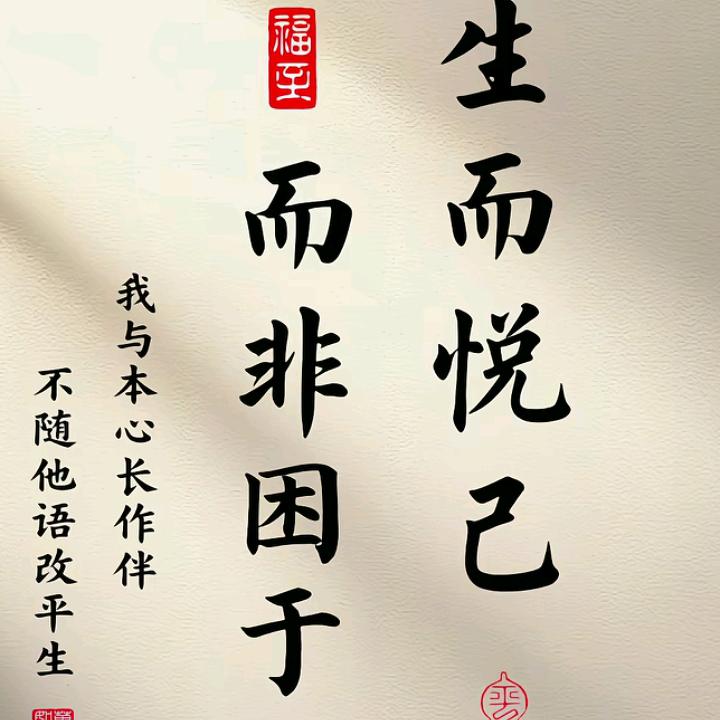 生而悦己
福至
而非困于
我与本心长作伴
不随他语改平生